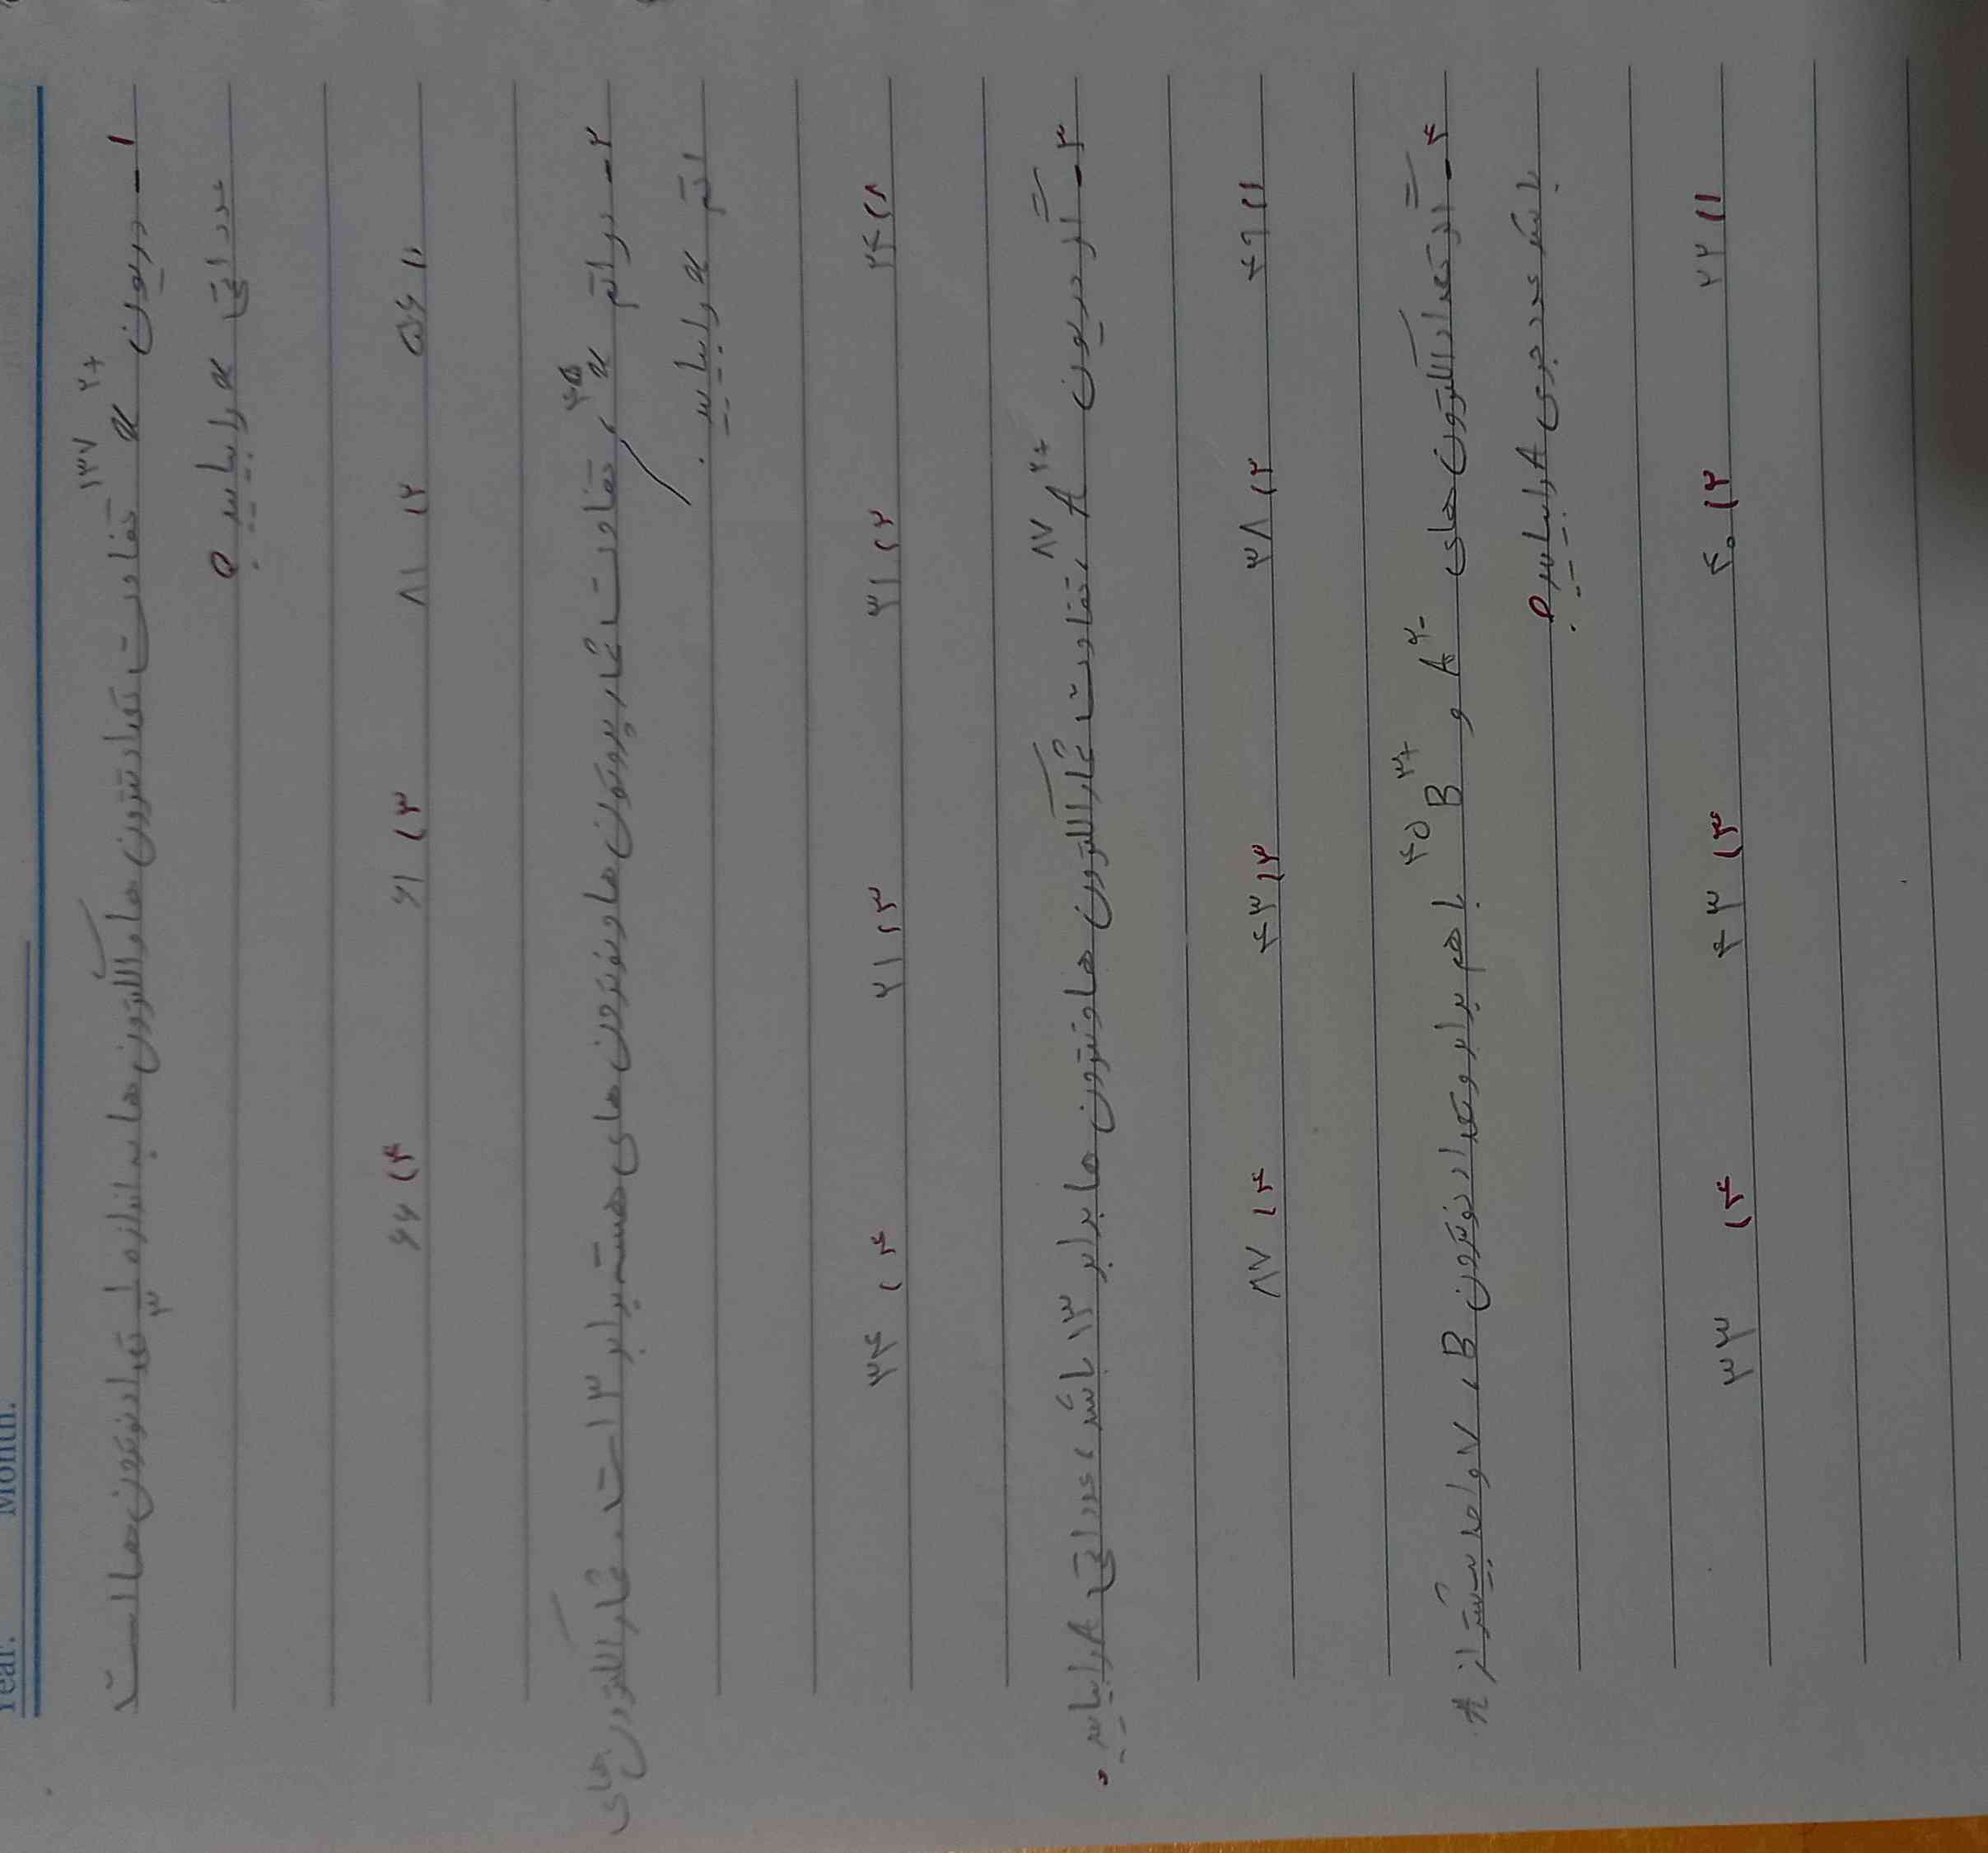 Year. Month.
۱- در یون ¹³⁷x²⁺ تفاوت تعداد نترون ها و الکترون ها به اندازه ⅓ تعداد نوترون ها است
عدد اتمی x را بیابید؟
۱) ۵۶ ۲) ۸۱ ۳) ۶۱ ۴) ۶۶
۲- در اتم ⁴⁵x، تفاوت شمار پروتون ها و نوترون های هسته برابر ۳ است. شمار الکترون های
اتم x را بیابید.
۱) ۲۴ ۲) ۳۱ ۳) ۲۱ ۴) ۳۴
۳- اگر در یون ⁸⁷A²⁺، تفاوت شمار الکترون ها و نترون ها برابر ۱۳ باشد، عدد اتمی A را بیابید.
۱) ۴۹ ۲) ۳۸ ۳) ۴۳ ۴) ۸۷
۴- اگر تعداد الکترون های A²⁻ و ⁴⁵B³⁺ با هم برابر و تعداد نوترون B، ۷ واحد بیشتر از A
باشد عدد جرمی A را بیابید؟
۱) ۲۲ ۲) ۴۰ ۳) ۴۳ ۴) ۳۳